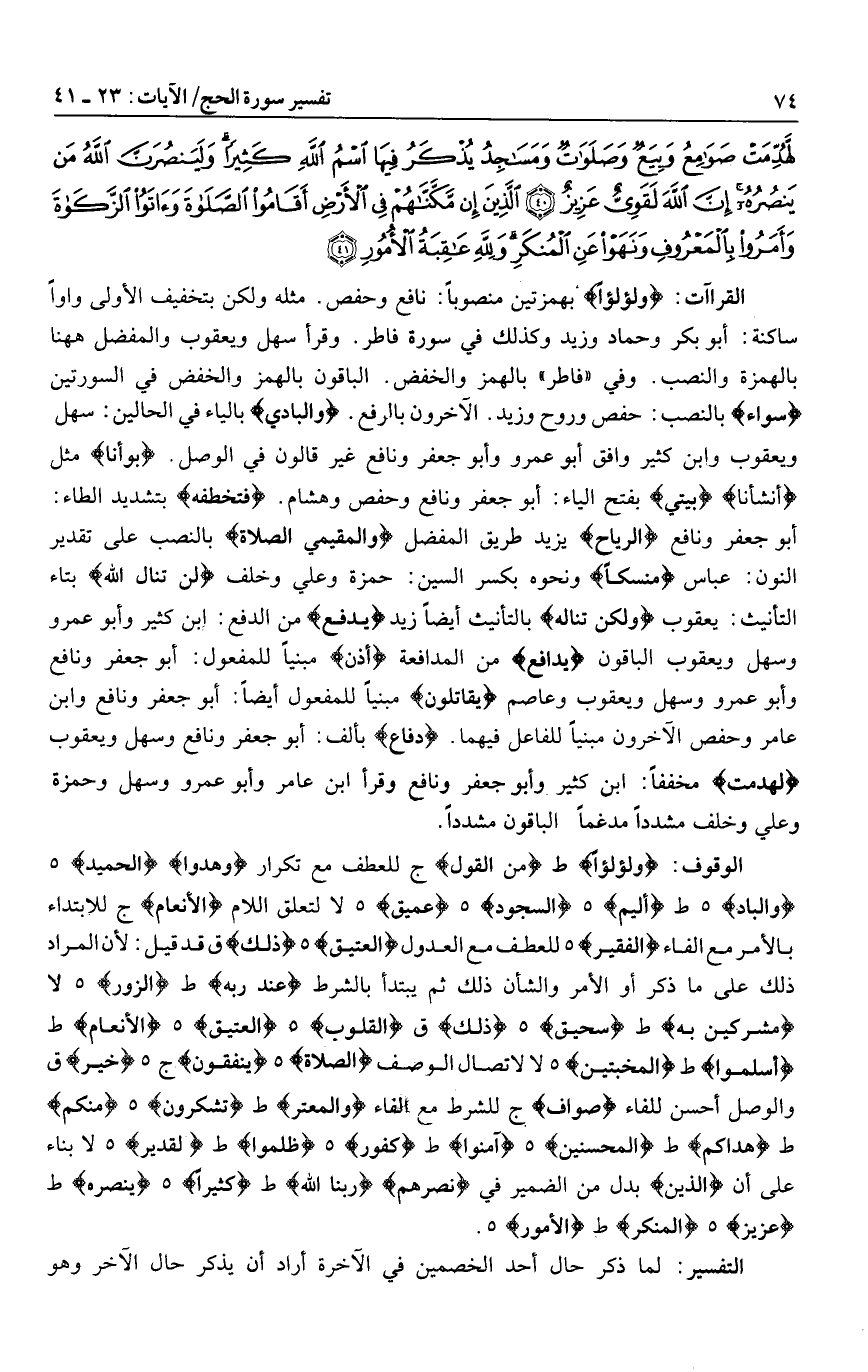 ٧٤ تفسير سورة الحج/ الآيات: ٢٣ ـ ٤١
لَّهُدِّمَتْ صَوَٰمِعُ وَبِيَعٌ وَصَلَوَٰتٌ وَمَسَٰجِدُ يُذْكَرُ فِيهَا ٱسْمُ ٱللَّهِ كَثِيرًا ۗ وَلَيَنصُرَنَّ ٱللَّهُ مَن
يَنصُرُهُۥٓ ۗ إِنَّ ٱللَّهَ لَقَوِىٌّ عَزِيزٌ ﴿٤٠﴾ ٱلَّذِينَ إِن مَّكَّنَّٰهُمْ فِى ٱلْأَرْضِ أَقَامُوا۟ ٱلصَّلَوٰةَ وَءَاتَوُا۟ ٱلزَّكَوٰةَ
وَأَمَرُوا۟ بِٱلْمَعْرُوفِ وَنَهَوْا۟ عَنِ ٱلْمُنكَرِ ۗ وَلِلَّهِ عَٰقِبَةُ ٱلْأُمُورِ ﴿٤١﴾
القراآت: ﴿ولؤلؤاً﴾ بهمزتين منصوباً: نافع وحفص. مثله ولكن بتخفيف الأولى واواً
ساكنة: أبو بكر وحماد وزيد وكذلك في سورة فاطر. وقرأ سهل ويعقوب والمفضل ههنا
بالهمزة والنصب. وفي «فاطر» بالهمز والخفض. الباقون بالهمز والخفض في السورتين
﴿سواء﴾ بالنصب: حفص وروح وزيد. الآخرون بالرفع. ﴿والبادي﴾ بالياء في الحالين: سهل
ويعقوب وابن كثير وافق أبو عمرو وأبو جعفر ونافع غير قالون في الوصل. ﴿بوأنا﴾ مثل
﴿أنشأنا﴾ ﴿بيتي﴾ بفتح الياء: أبو جعفر ونافع وحفص وهشام. ﴿فتخطفه﴾ بتشديد الطاء:
أبو جعفر ونافع ﴿الرياح﴾ يزيد طريق المفضل ﴿والمقيمي الصلاة﴾ بالنصب على تقدير
النون: عباس ﴿منسكاً﴾ ونحوه بكسر السين: حمزة وعلي وخلف ﴿لن تنال الله﴾ بتاء
التأنيث: يعقوب ﴿ولكن تناله﴾ بالتأنيث أيضاً زيد ﴿يدفع﴾ من الدفع: ابن كثير وأبو عمرو
وسهل ويعقوب الباقون ﴿يدافع﴾ من المدافعة ﴿أذن﴾ مبنياً للمفعول: أبو جعفر ونافع
وأبو عمرو وسهل ويعقوب وعاصم ﴿يقاتلون﴾ مبنياً للمفعول أيضاً: أبو جعفر ونافع وابن
عامر وحفص الآخرون مبنياً للفاعل فيهما. ﴿دفاع﴾ بألف: أبو جعفر ونافع وسهل ويعقوب
﴿لهدمت﴾ مخففاً: ابن كثير وأبو جعفر ونافع وقرأ ابن عامر وأبو عمرو وسهل وحمزة
وعلي وخلف مشدداً مدغماً الباقون مشدداً.
الوقوف: ﴿ولؤلؤاً﴾ ط ﴿من القول﴾ ج للعطف مع تكرار ﴿وهدوا﴾ ﴿الحميد﴾ ٥
﴿والباد﴾ ٥ ط ﴿أليم﴾ ٥ ﴿السجود﴾ ٥ ﴿عميق﴾ ٥ لا لتعلق اللام ﴿الأنعام﴾ ج للابتداء
بالأمر مع الفاء ﴿الفقير﴾ ٥ للعطف مع العدول ﴿العتيق﴾ ٥ ﴿ذلك﴾ ق قد قيل: لأن المراد
ذلك على ما ذكر أو الأمر والشأن ذلك ثم يبتدأ بالشرط ﴿عند ربه﴾ ط ﴿الزور﴾ ٥ لا
﴿مشركين به﴾ ط ﴿سحيق﴾ ٥ ﴿ذلك﴾ ق ﴿القلوب﴾ ٥ ﴿العتيق﴾ ٥ ﴿الأنعام﴾ ط
﴿أسلموا﴾ ط ﴿المخبتين﴾ ٥ لا لاتصال الوصف ﴿الصلاة﴾ ٥ ﴿ينفقون﴾ ج ٥ ﴿خير﴾ ق
والوصل أحسن للفاء ﴿صواف﴾ ج للشرط مع الفاء ﴿والمعتر﴾ ط ﴿تشكرون﴾ ٥ ﴿منكم﴾
ط ﴿هداكم﴾ ط ﴿المحسنين﴾ ٥ ﴿آمنوا﴾ ط ﴿كفور﴾ ٥ ﴿ظلموا﴾ ط ﴿لقدير﴾ ٥ لا بناء
على أن ﴿الذين﴾ بدل من الضمير في ﴿نصرهم﴾ ﴿ربنا الله﴾ ط ﴿كثيراً﴾ ٥ ﴿ينصره﴾ ط
﴿عزيز﴾ ٥ ﴿المنكر﴾ ط ﴿الأمور﴾ ٥.
التفسير: لما ذكر حال أحد الخصمين في الآخرة أراد أن يذكر حال الآخر وهو